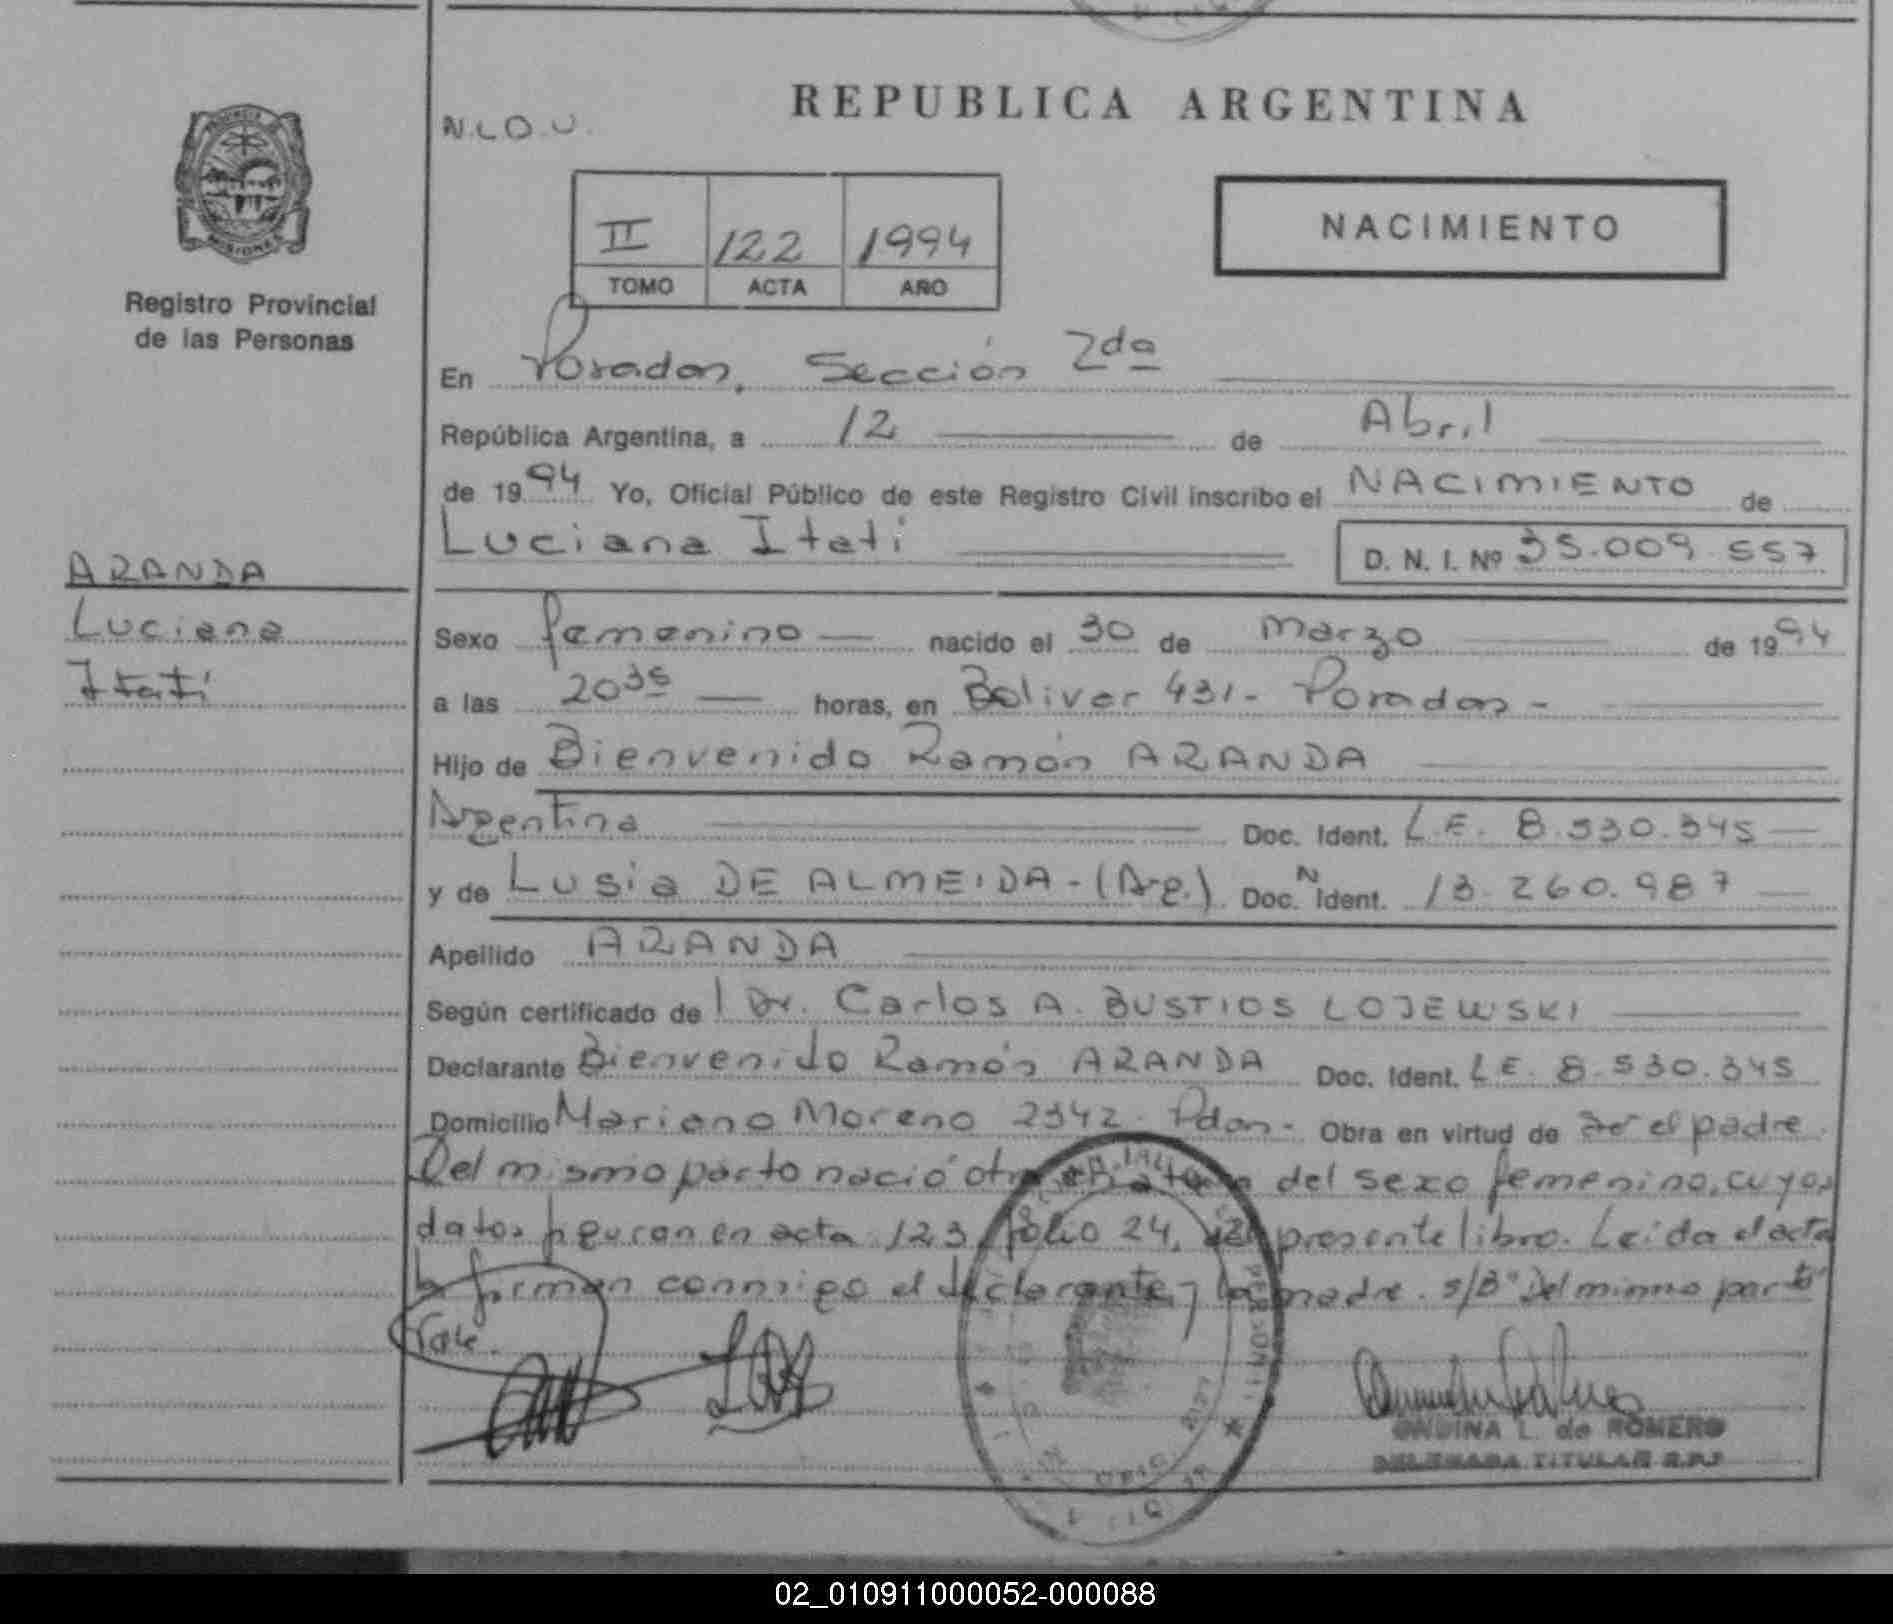 REPUBLICA ARGENTINA
N.L.O.U.
II 122 1994
TOMO ACTA AÑO
NACIMIENTO
MISIONES
Registro Provincial
de las Personas
En Posadas, Sección 2da
República Argentina, a 12 de Abril
de 1994 Yo, Oficial Público de este Registro Civil inscribo el NACIMIENTO de
Luciana Itati D. N. I. Nº 35.009.557
ARANDA
Luciana
Itatí
Sexo femenino nacido el 30 de marzo de 1994
a las 20 35 horas, en Bolivar 431 - Posadas -
Hijo de Bienvenido Ramón ARANDA
Argentina Doc. Ident. L.E. 8.530.345
y de Lusia DE ALMEIDA - (Arg.) Doc. N Ident. 13.260.987
Apellido ARANDA
Según certificado de l Dr. Carlos A. BUSTIOS LOJEWSKI
Declarante Bienvenido Ramón ARANDA Doc. Ident. L.E. 8.530.345
Domicilio Mariano Moreno 2342. Pdas - Obra en virtud de ser el padre.
Del mismo parto nació otra del sexo femenino, cuyos
datos figuran en acta 123, folio 24, del presente libro. Leída el acta
la firman conmigo el declarante y la madre. s/B "Del mismo parto"
Vale.
ONDINA L. de ROMERO
DELEGADA TITULAR R.P.P.
02_010911000052-000088